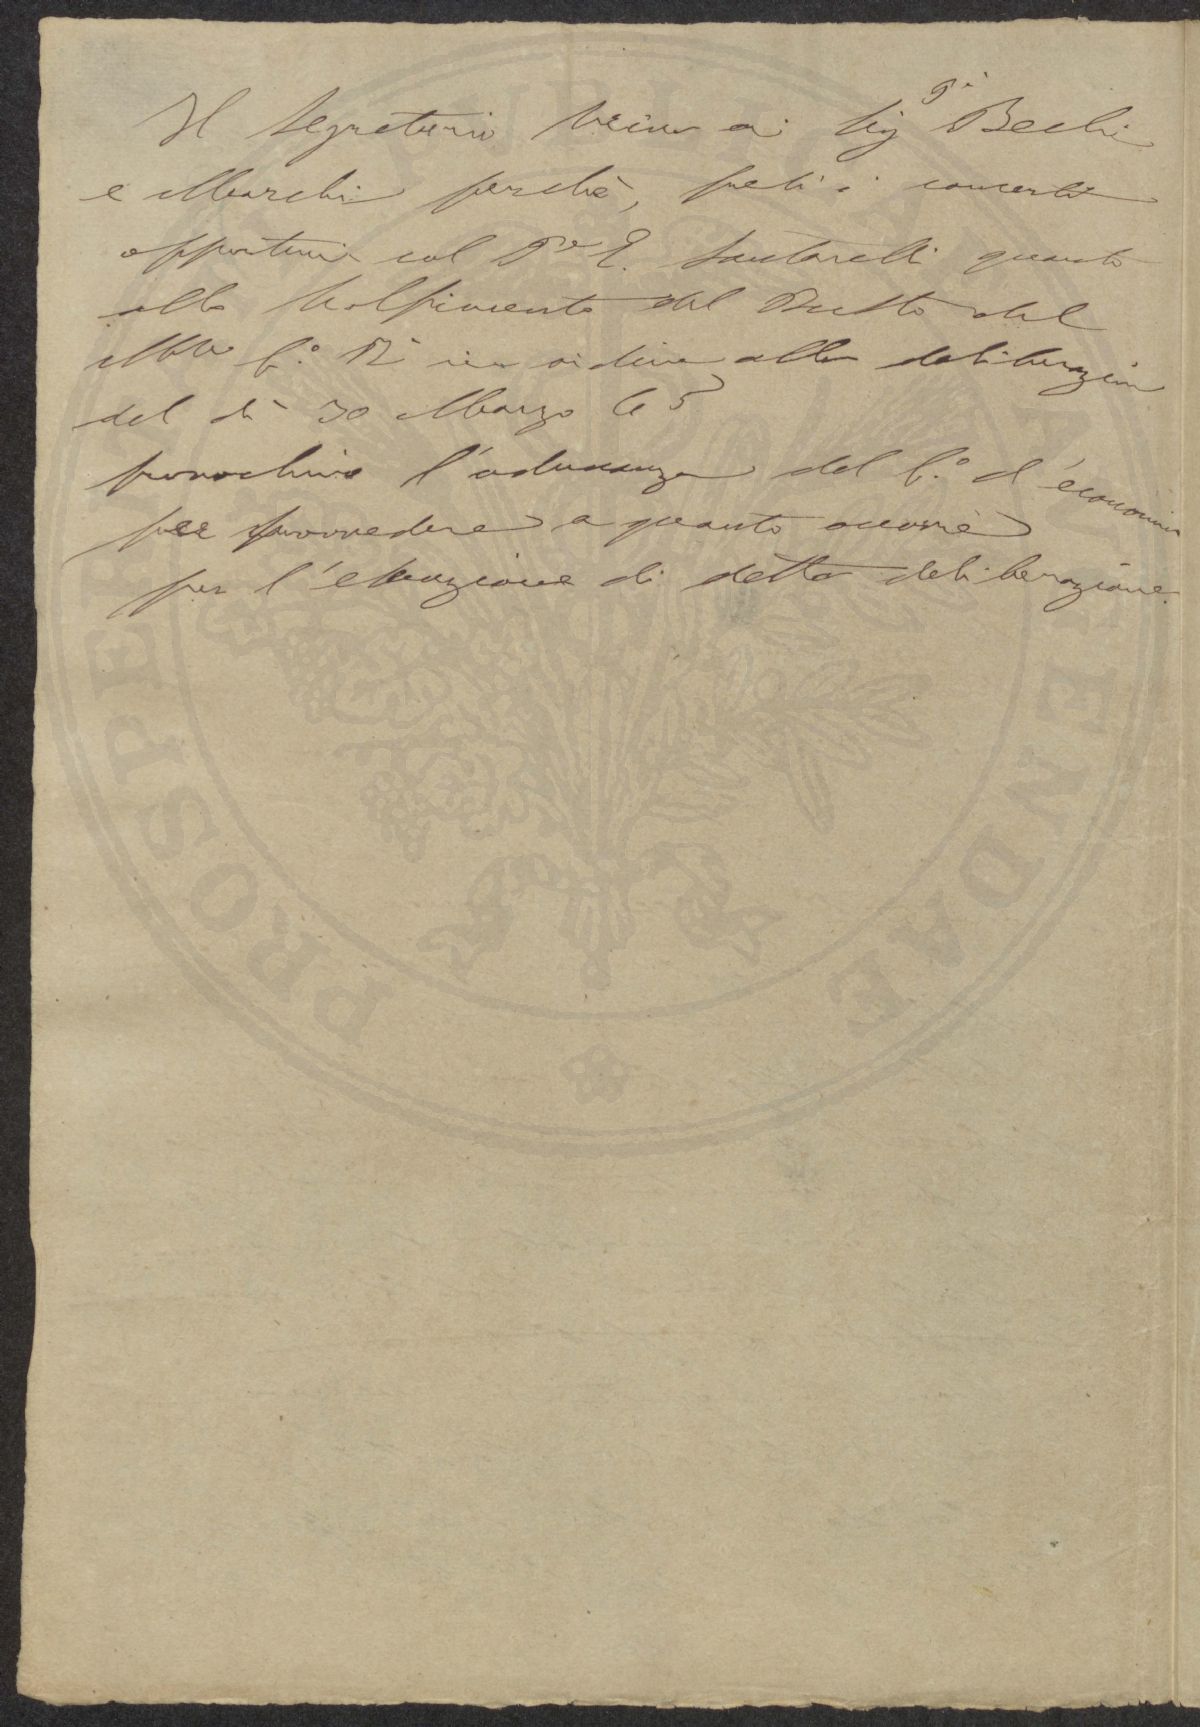 Il Segretario scriva ai Sig.ri Bechi
e Marchi perchè, presi i concerti
opportuni col Pre E. Santarelli quanto
allo scolpimento del Busto del
Mse C.o R. in ordine alla deliberazione
del dì 30 Marzo 65
provochino l'adunanza del C.o d'economia
per provvedere a quanto occorre
per l'esecuzione di detta deliberazione.
PROSPERITATI PVBLICAE AVGENDAE